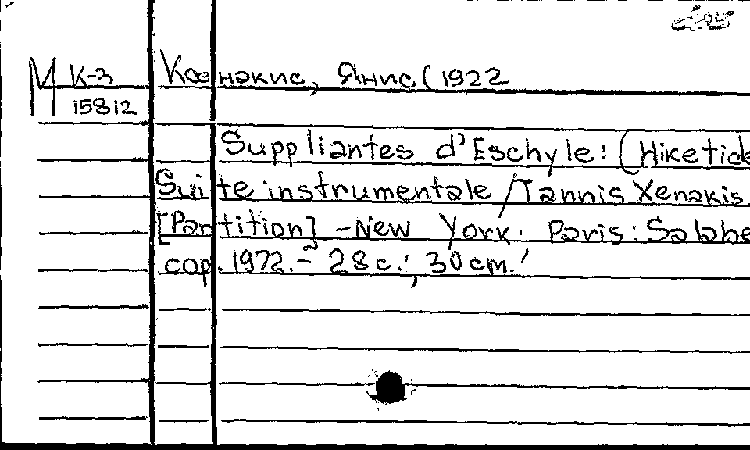 М К-3
15812
Ксенакис, Янис (1922
Suppliantes d'Eschyle: (Hiketid
Suite instrumentale / Iannis Xenakis
[Partition] - New York. Paris: Salabe
cop. 1972. - 28 c.; 30 cm.